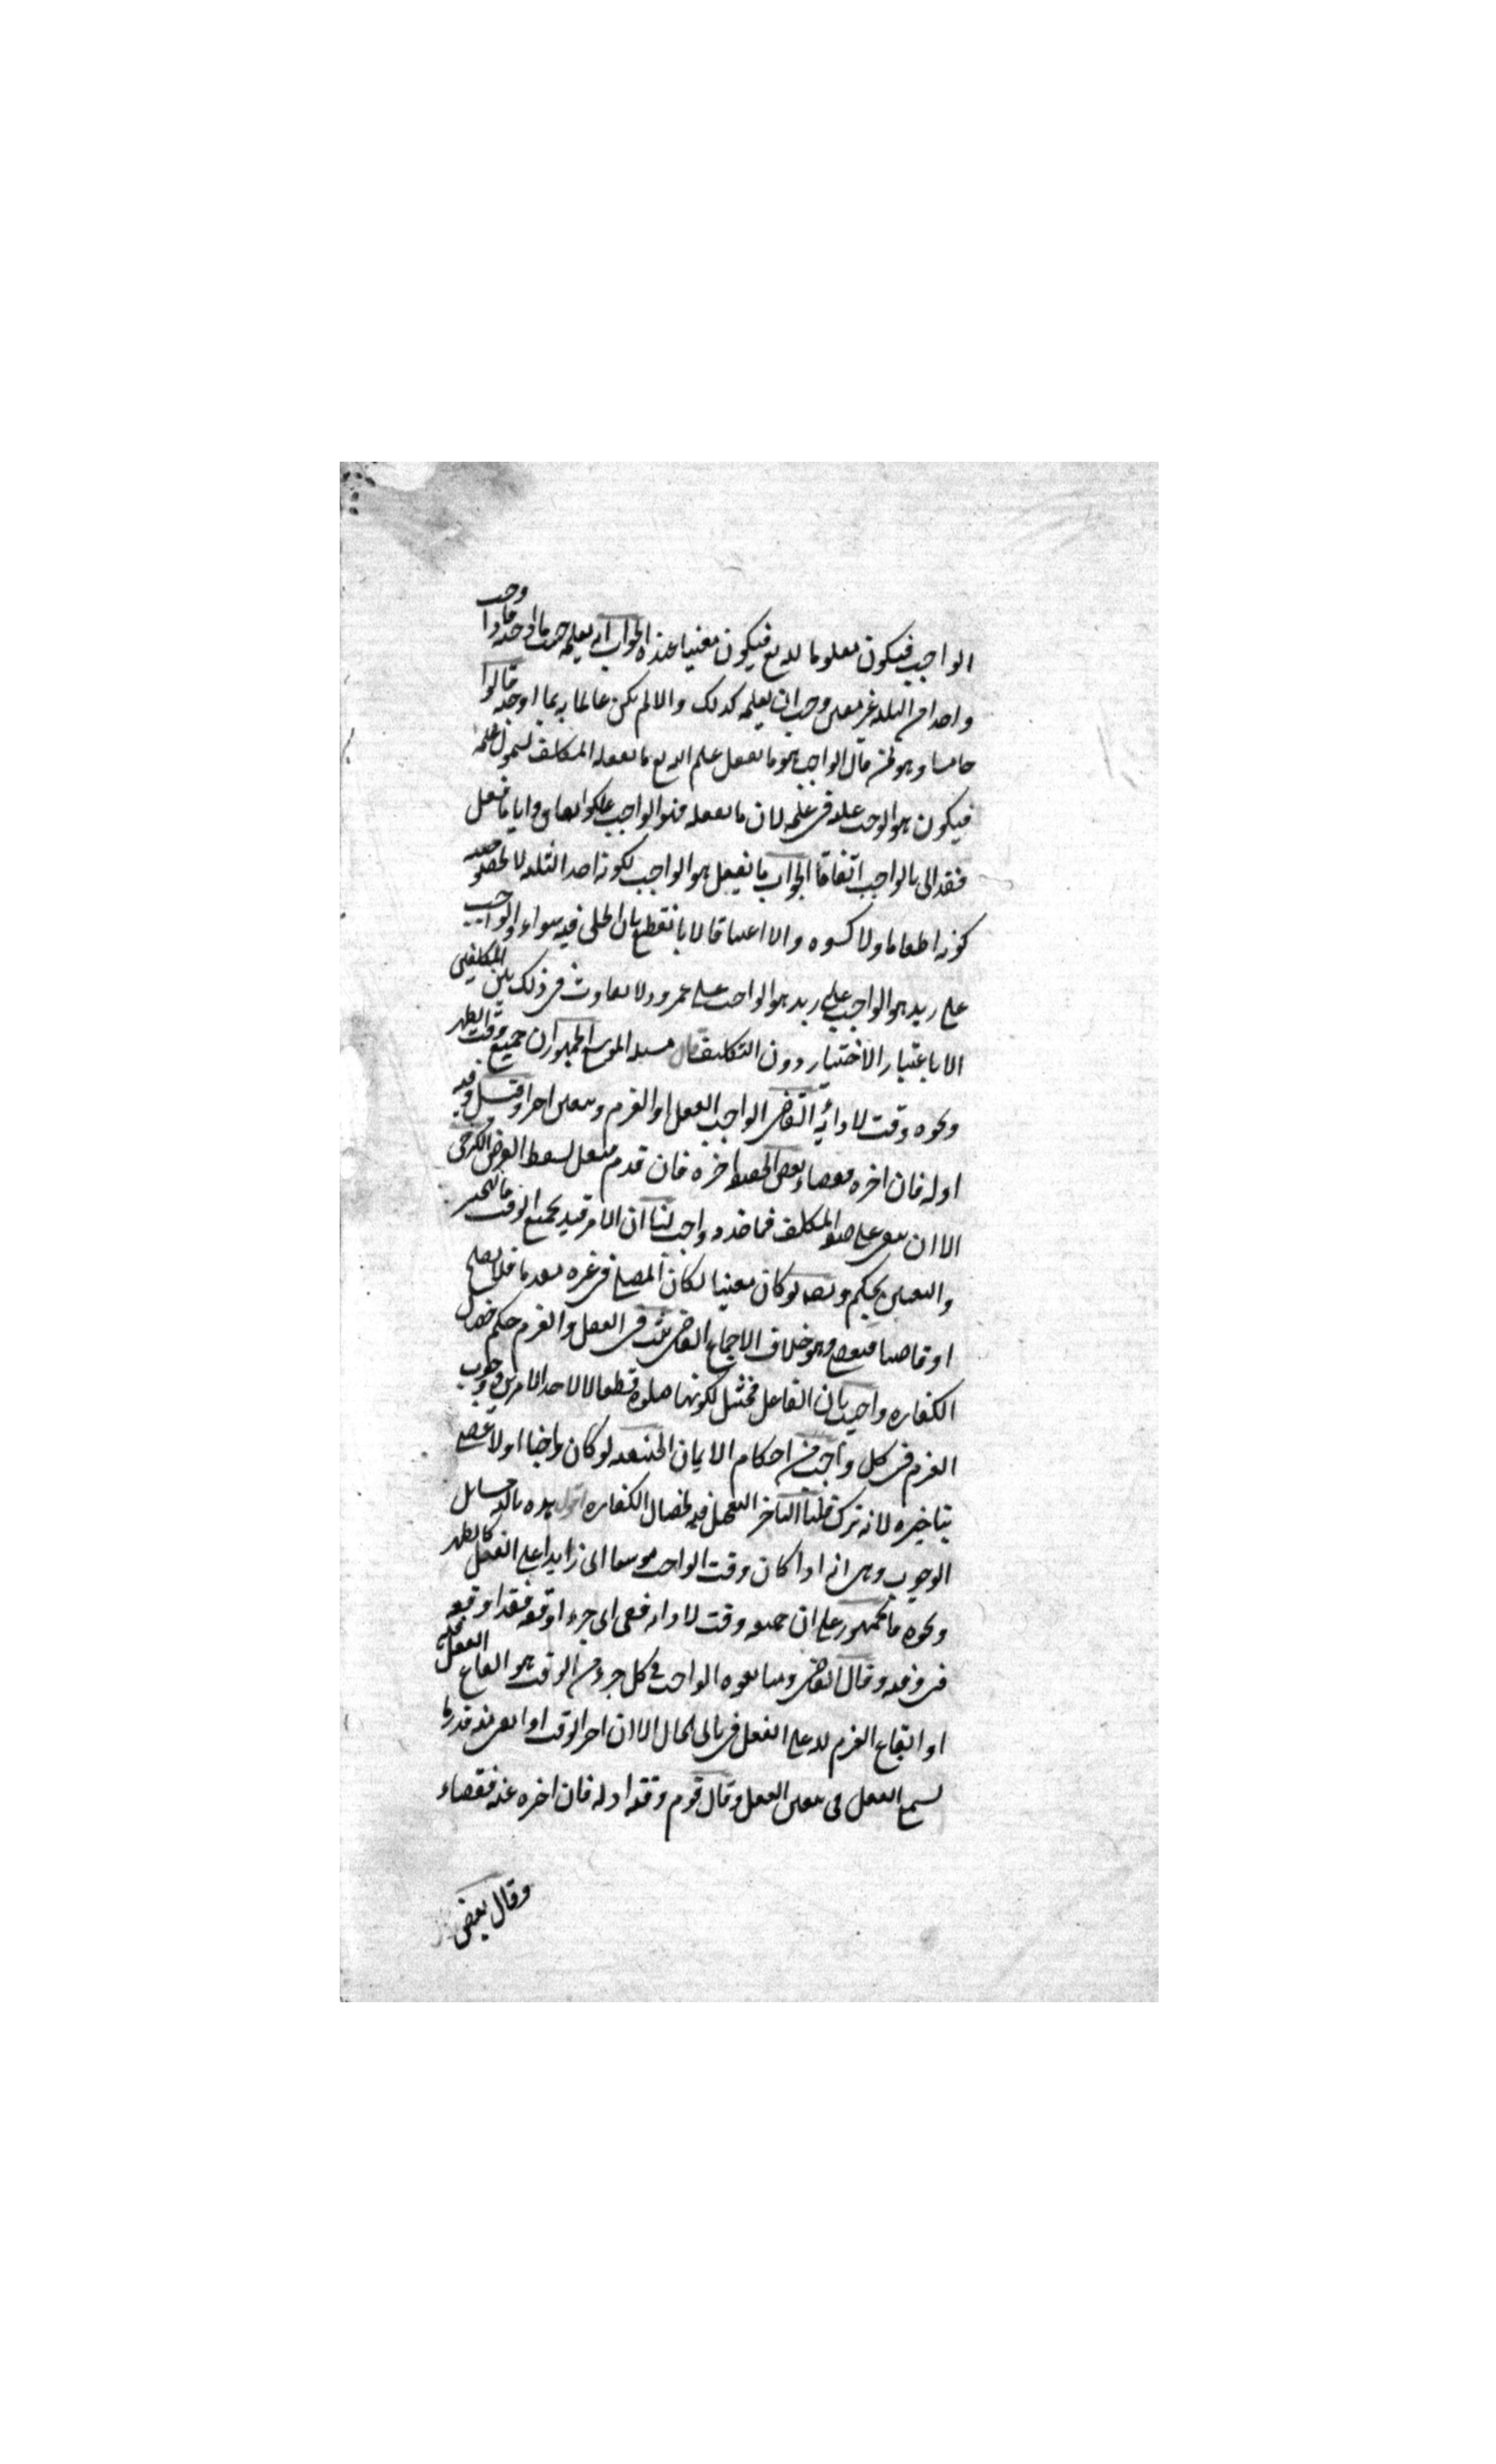 الواجب فيكون معلوما لله تع فيكون معينا عنده الجواب انه يعلمه حسب ما اوجبه واذا وجب
واحدا من الثلثة غير معين وجب ان يعلمه كذلك والا لم يكن عالما به بما اوجبه قالوا
خامسا وهو لمن قال الواجب هو ما يفعل علم الله تع ما يفعله المكلف لشمول علمه
فيكون هو الوجب عليه في علمه لان ما يفعله فهو الواجب عليه واياما فعل
فقد اتى بالواجب اتفاقا الجواب ما يفعل هو الواجب لكونه احد الثلثة لا لخصوصه
كونه اطعاما ولا كسوة والا اعتاقا لانا نقطع بان الخلق فيه سواء والواجب
على زيد هو الواجب على عمرو ولا تفاوت في ذلك بين المكلفين
الا باعتبار الاختيار دون التكليف قال مسئلة الموسع الجمهور ان جميع وقت الظهر
ونحوه وقت لادائه القاضى الواجب الفعل او العزم ويتعين اخرا وقيل وقته
اوله فان اخره فقضاء بعض الحنفية اخره فان قدم فنفل يسقط الفرض الكرخى
الا ان يبقى على صفة المكلف فما قدمه واجب لنا ان الامر قيد بجميع الوقت فالتخيير
والتعيين تحكم وايضا لو كان معينا لكان المصلى في غيره مقدما فلا يصح
او قاضيا فيعصى وهو خلاف الاجماع القاضى ثبت في الفعل والعزم حكم خصال
الكفارة واجيب بان الفاعل ممتثل لكونها صلوة قطعا لا لاحد الامرين ووجوب
العزم في كل واجب من احكام الايمان الحنفية لو كان واجبا اولا عصى
بتاخيره لانه ترك قلنا التاخير والتعجيل فيه كخصال الكفارة اقول هذه ثالثة مسايل
الوجوب وهى انه اذا كان وقت الواجب موسعا اى زايدا على الفعل كالظهر
ونحوه فالجمهور على ان جميعه وقت لادائه ففى اى جزء اوقعه فقد اوقعه
في وقته وقال القاضى ومتابعوه الواجب في كل جزء من الوقت هو ايقاع الفعل فيه
او ايقاع العزم فيه على الفعل في ثانى الحال الا ان اخر الوقت اذا بقى منه قدر ما
يسع الفعل فيتعين الفعل وقال قوم وقته اوله فان اخره عنه فقضاء
وقال بعض